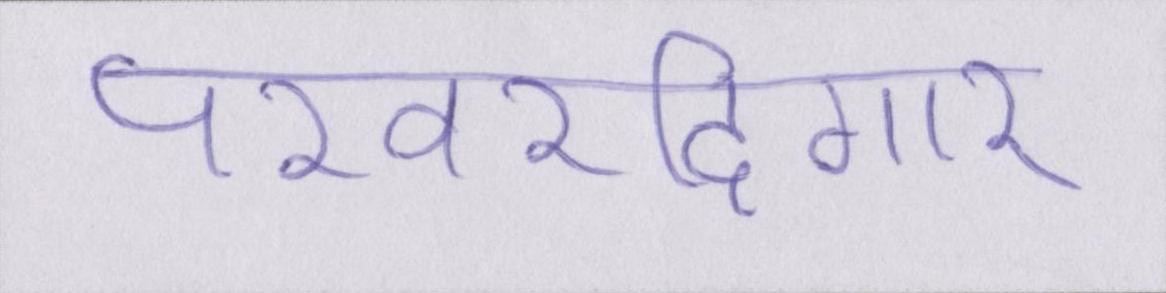 परवरदिगार